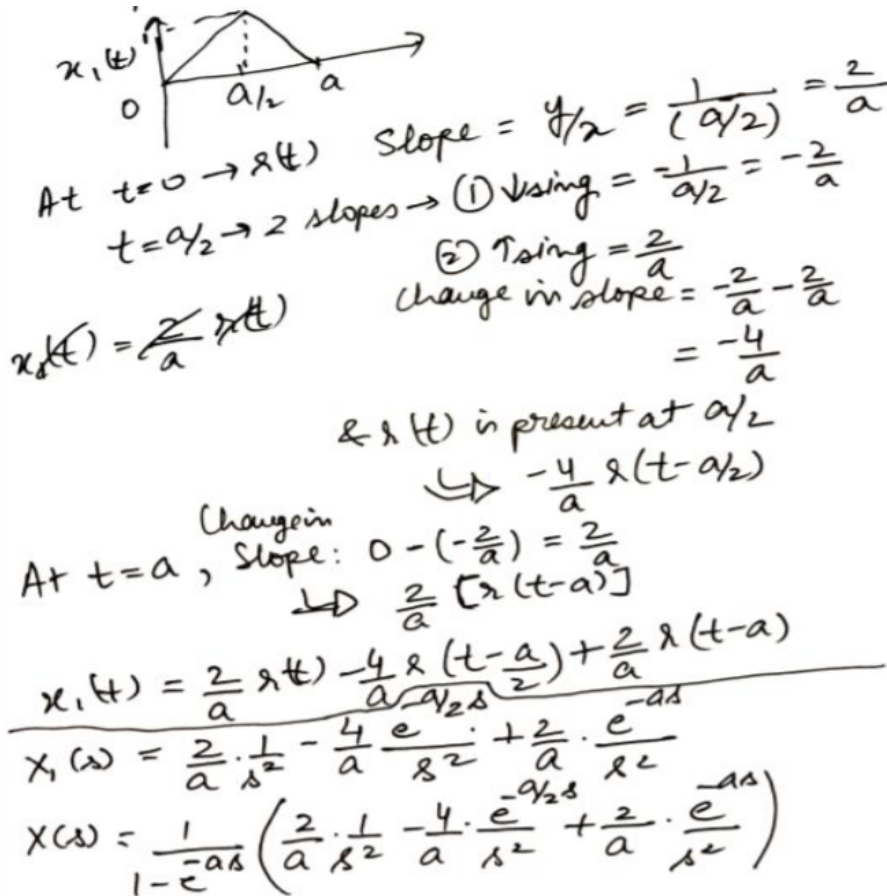 x₁(t)
0 a/2 a
At t=0 → r(t) Slope = y/x = 1/(a/2) = 2/a
t=a/2 → 2 slopes → ① ↓sing = -1/(a/2) = -2/a
② ↑sing = 2/a
x₁(t) = 2/a r(t) Change in slope = -2/a - 2/a
= -4/a
& r(t) is present at a/2
↳ -4/a r(t-a/2)
At t=a, Change in Slope: 0-(-2/a) = 2/a
↳ 2/a [r(t-a)]
x₁(t) = 2/a r(t) - 4/a r(t-a/2) + 2/a r(t-a)
X₁(s) = 2/a · 1/s² - 4/a e^(-a/2 s)/s² + 2/a · e^(-as)/s²
X(s) = 1/(1-e^(-as)) (2/a · 1/s² - 4/a · e^(-a/2 s)/s² + 2/a · e^(-as)/s²)